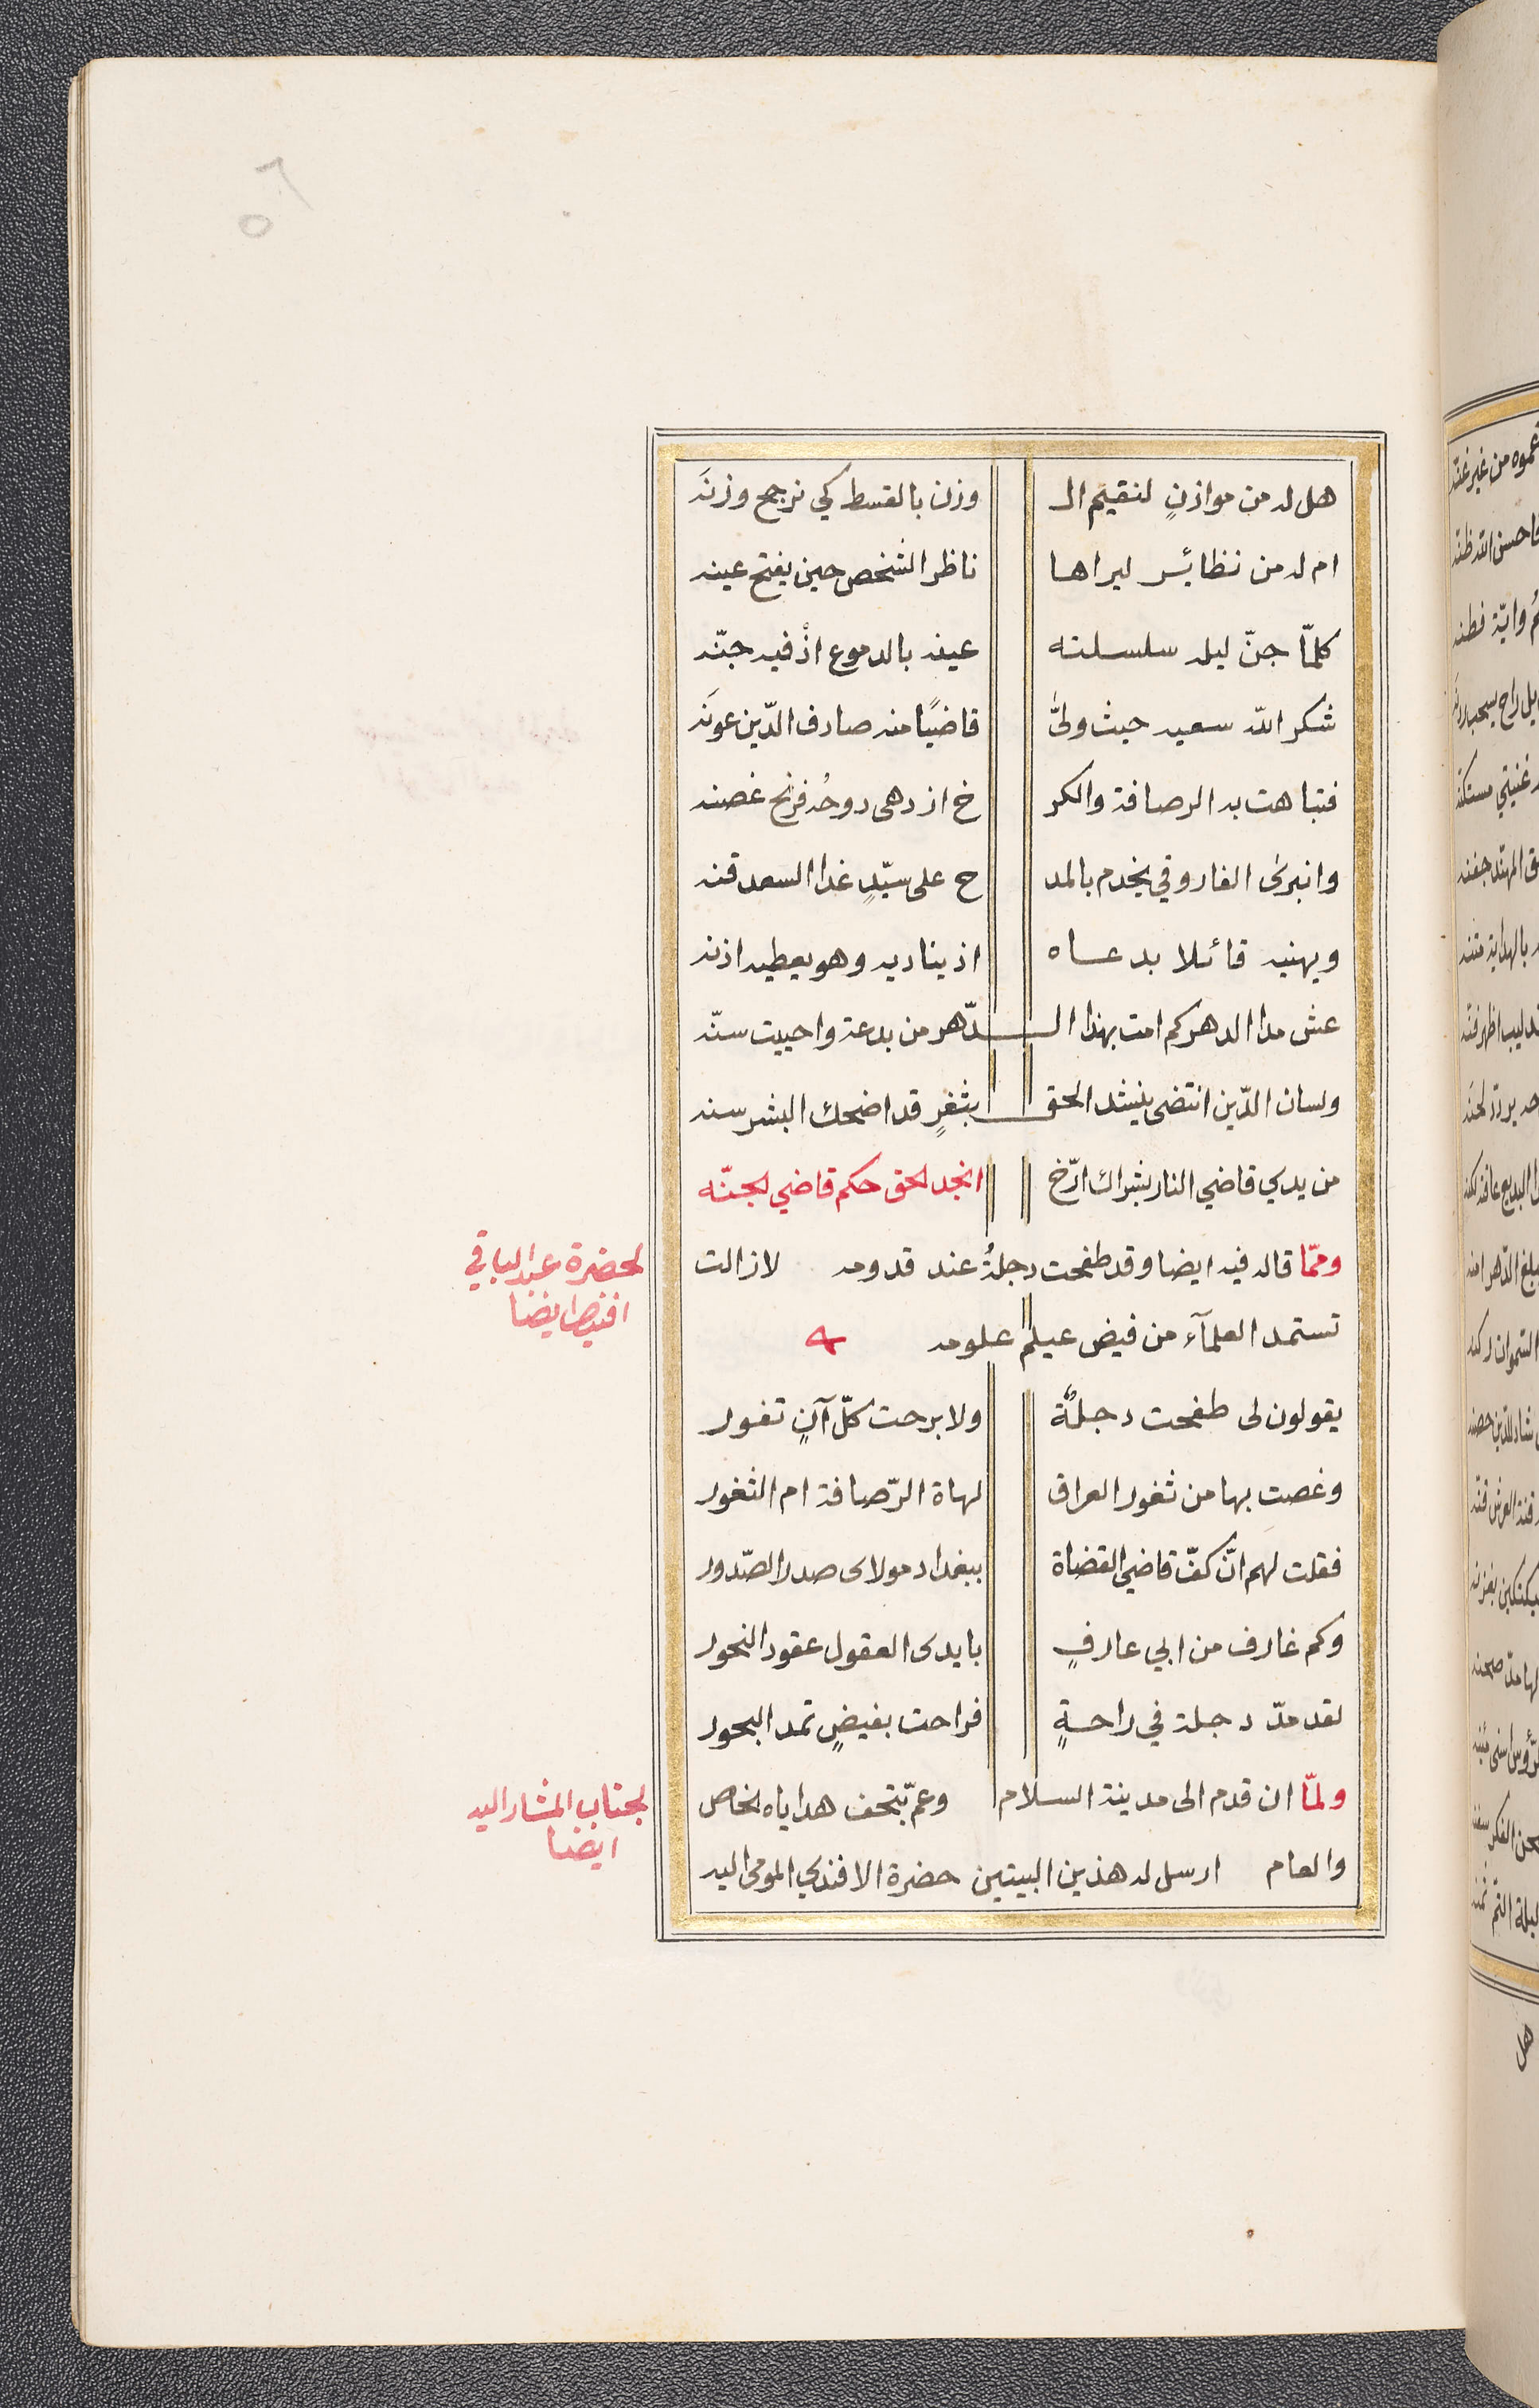 ٥٦
هل له من موازنٍ لنقيم الـ وزن بالقسط كي نرجح وزنه
ام له من نظائر ليراها ناظر الشخص حين يفتح عينه
كلمّا جنّ ليله سلسلته عينه بالدموع اذْ فيه جنّه
شكر الله سعيه حيث ولىّ قاضيًا منه صادف الدّين عونه
فتباهت به الرصافة والكر خ ازدهى دوحُه فرنح غصنه
وانبرى الفاروقي يخدم بالمد ح على سيّدٍ غدا السعد قنه
ويهنيه قائلا بدعاه اذ يناديه وهو يعطيه اذنه
عش مدا الدهر كم امت بهذا الـدّهر من بدعة واحييت سنّه
ولسان الدّين انتضى ينشد الحق بثغرٍ قد اضحك البشر سنه
من يدي قاضي النار بشراك ارّخ انجد لحق حكم قاضي لجنّه
وممّا قاله فيه ايضا وقد طفحت دجلةُ عند قدومه لازالت
لحضرة عبد الباقي
افندى ايضا
تستمد العلمآء من فيض عيلم علومه
يقولون لى طفحت دجلةٌ ولا برحت كلّ آنٍ تفور
وغصت بها من ثغور العراق لهاة الرّصافة ام الثغور
فقلت لهم انّ كفّ قاضي القضاة ببغداد مولاى صدر الصّدور
وكم غارف من ابي عارفٍ بايدى العقول عقود النحور
لقد مدّ دجلة في راحةٍ فراحت بفيضٍ تمد البحور
ولمّا ان قدم الى مدينة السلام وعمّ بتحف هداياه لخاص
لجناب المشار اليه
ايضا
والعام ارسل له هذين البيتين حضرة الافندي المومى اليه
هل